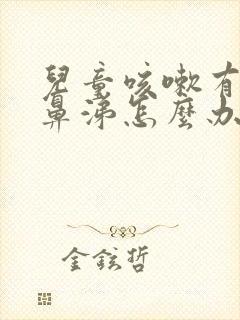 兒童咳嗽有
鼻涕怎麼办
金鉉哲